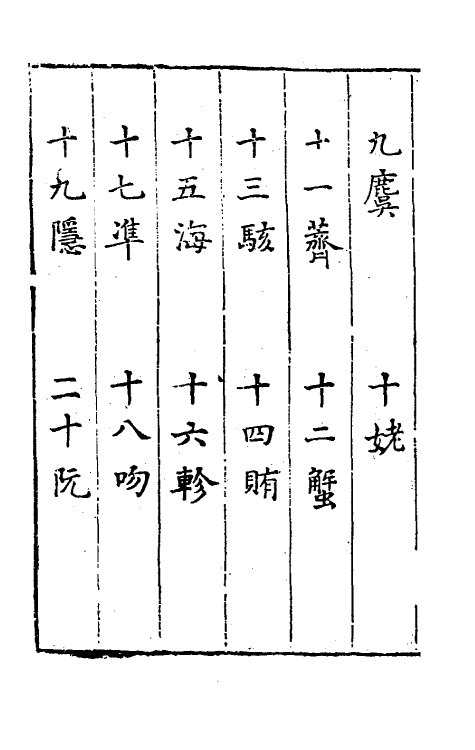 九麌　十姥
十一薺　十二蟹
十三駭　十四賄
十五海　十六軫
十七準　十八吻
十九隱　二十阮